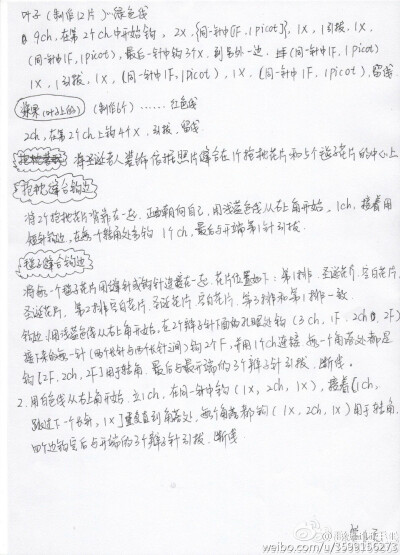 叶子(制作12片)…绿色线
9ch,在第2个ch中开始钩, 2X,{同一针中(1F, 1picot)}, 1X, 1引拔, 1X,
(同一针中1F, 1picot), 最后一针中钩3个X. 到另外一边,
1X, 1引拔, 1X, (同一针中1F, 1picot), 1X, (同一针中1F, 1picot), 留线.
浆果(叶子上的) (制作6个) …… 红色线
2ch, 在第2个ch上钩4个X, 引拔, 留线.
将圣诞老人装饰依据照片缝合在1个抱枕花片和5个毯子花片的中心上
抱枕缝合钩边
将2个抱枕花片背靠在一起, 正面朝向自己, 用浅蓝色线从右上角开始, 1ch, 接着用
短针钩边, 在每个转角处多钩1个ch, 最后与开端第1针引拔.
毯子缝合钩边
将每一个毯子花片用缝针或钩针连接在一起. 花片位置如下: 第1排: 圣诞花片, 空白花片,
圣诞花片, 第2排空白花片, 圣诞花片, 空白花片, 第3排和第1排一致.
钩边: 用浅蓝色线从右上角开始,
接下来的每一针(两个长针与两个长针之间)钩2个F, 并用1个ch连接. 每一个角落处都是
钩[2F, 2ch, 2F]用于转角. 最后与最开端的3个辫子针引拔, 断线.
2. 用白色线从右上角开始. 立1ch, 在同一针中钩(1X, 2ch, 1X), 接着[1ch,
跳过下一个长针, 1X]重复直到角落处, 每个角落都钩(1X, 2ch, 1X)用于转角.
四个边钩完后与开端的3个辫子针引拔. 断线
weibo.com/u/3599156273